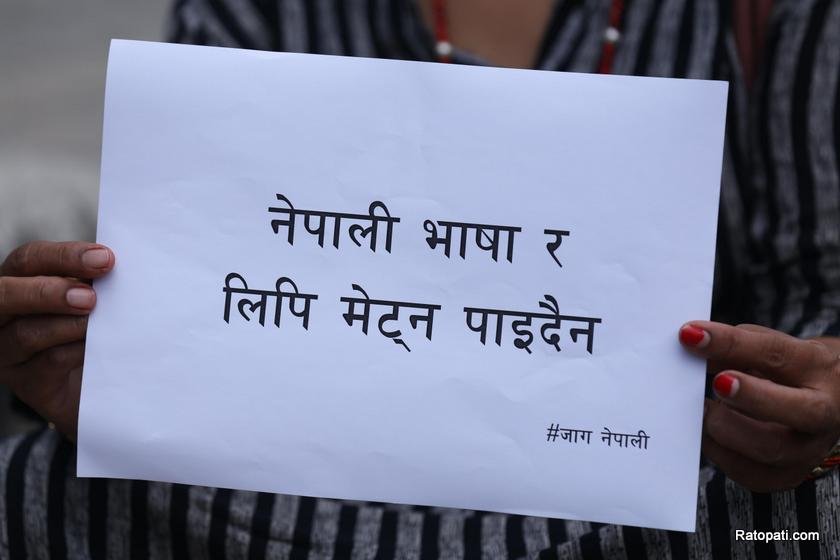 नेपाली भाषा र
लिपि मेट्न पाइदैन
#जाग नेपाली
Ratopati.com